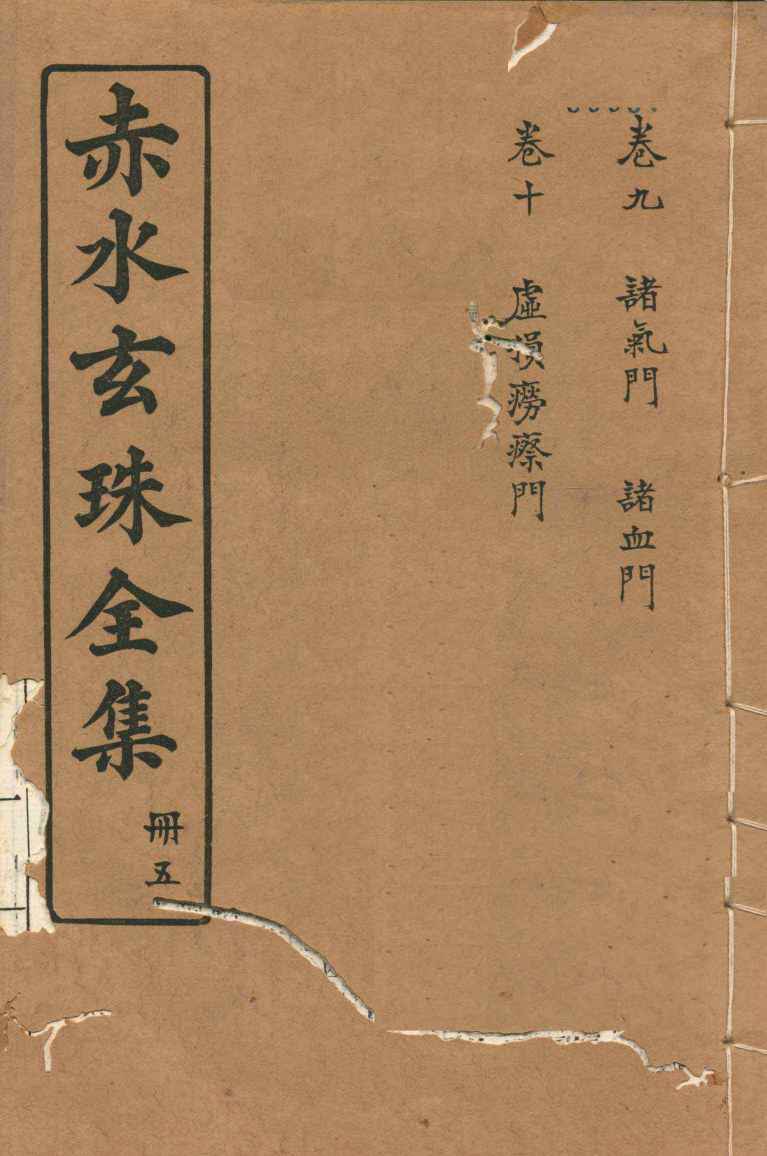 卷九　諸氣門　諸血門
卷十　虛損癆瘵門
赤水玄珠全集
冊五